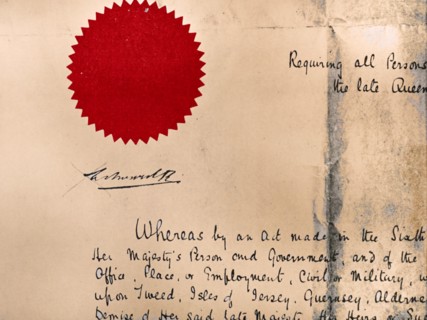 Requiring all Persons
the late Queen
Whereas by an Act made in the Sixth
Her Majesty's Person and Government, and of the
Office, Place, or Employment, Civil or Military, w
upon Tweed, Isles of Jersey, Guernsey, Aldern
Demise of Her said late Majesty, Her Heirs or Suc